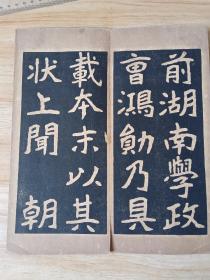 前湖南學政
曹鴻勛乃具
載本末以其
狀上聞 朝